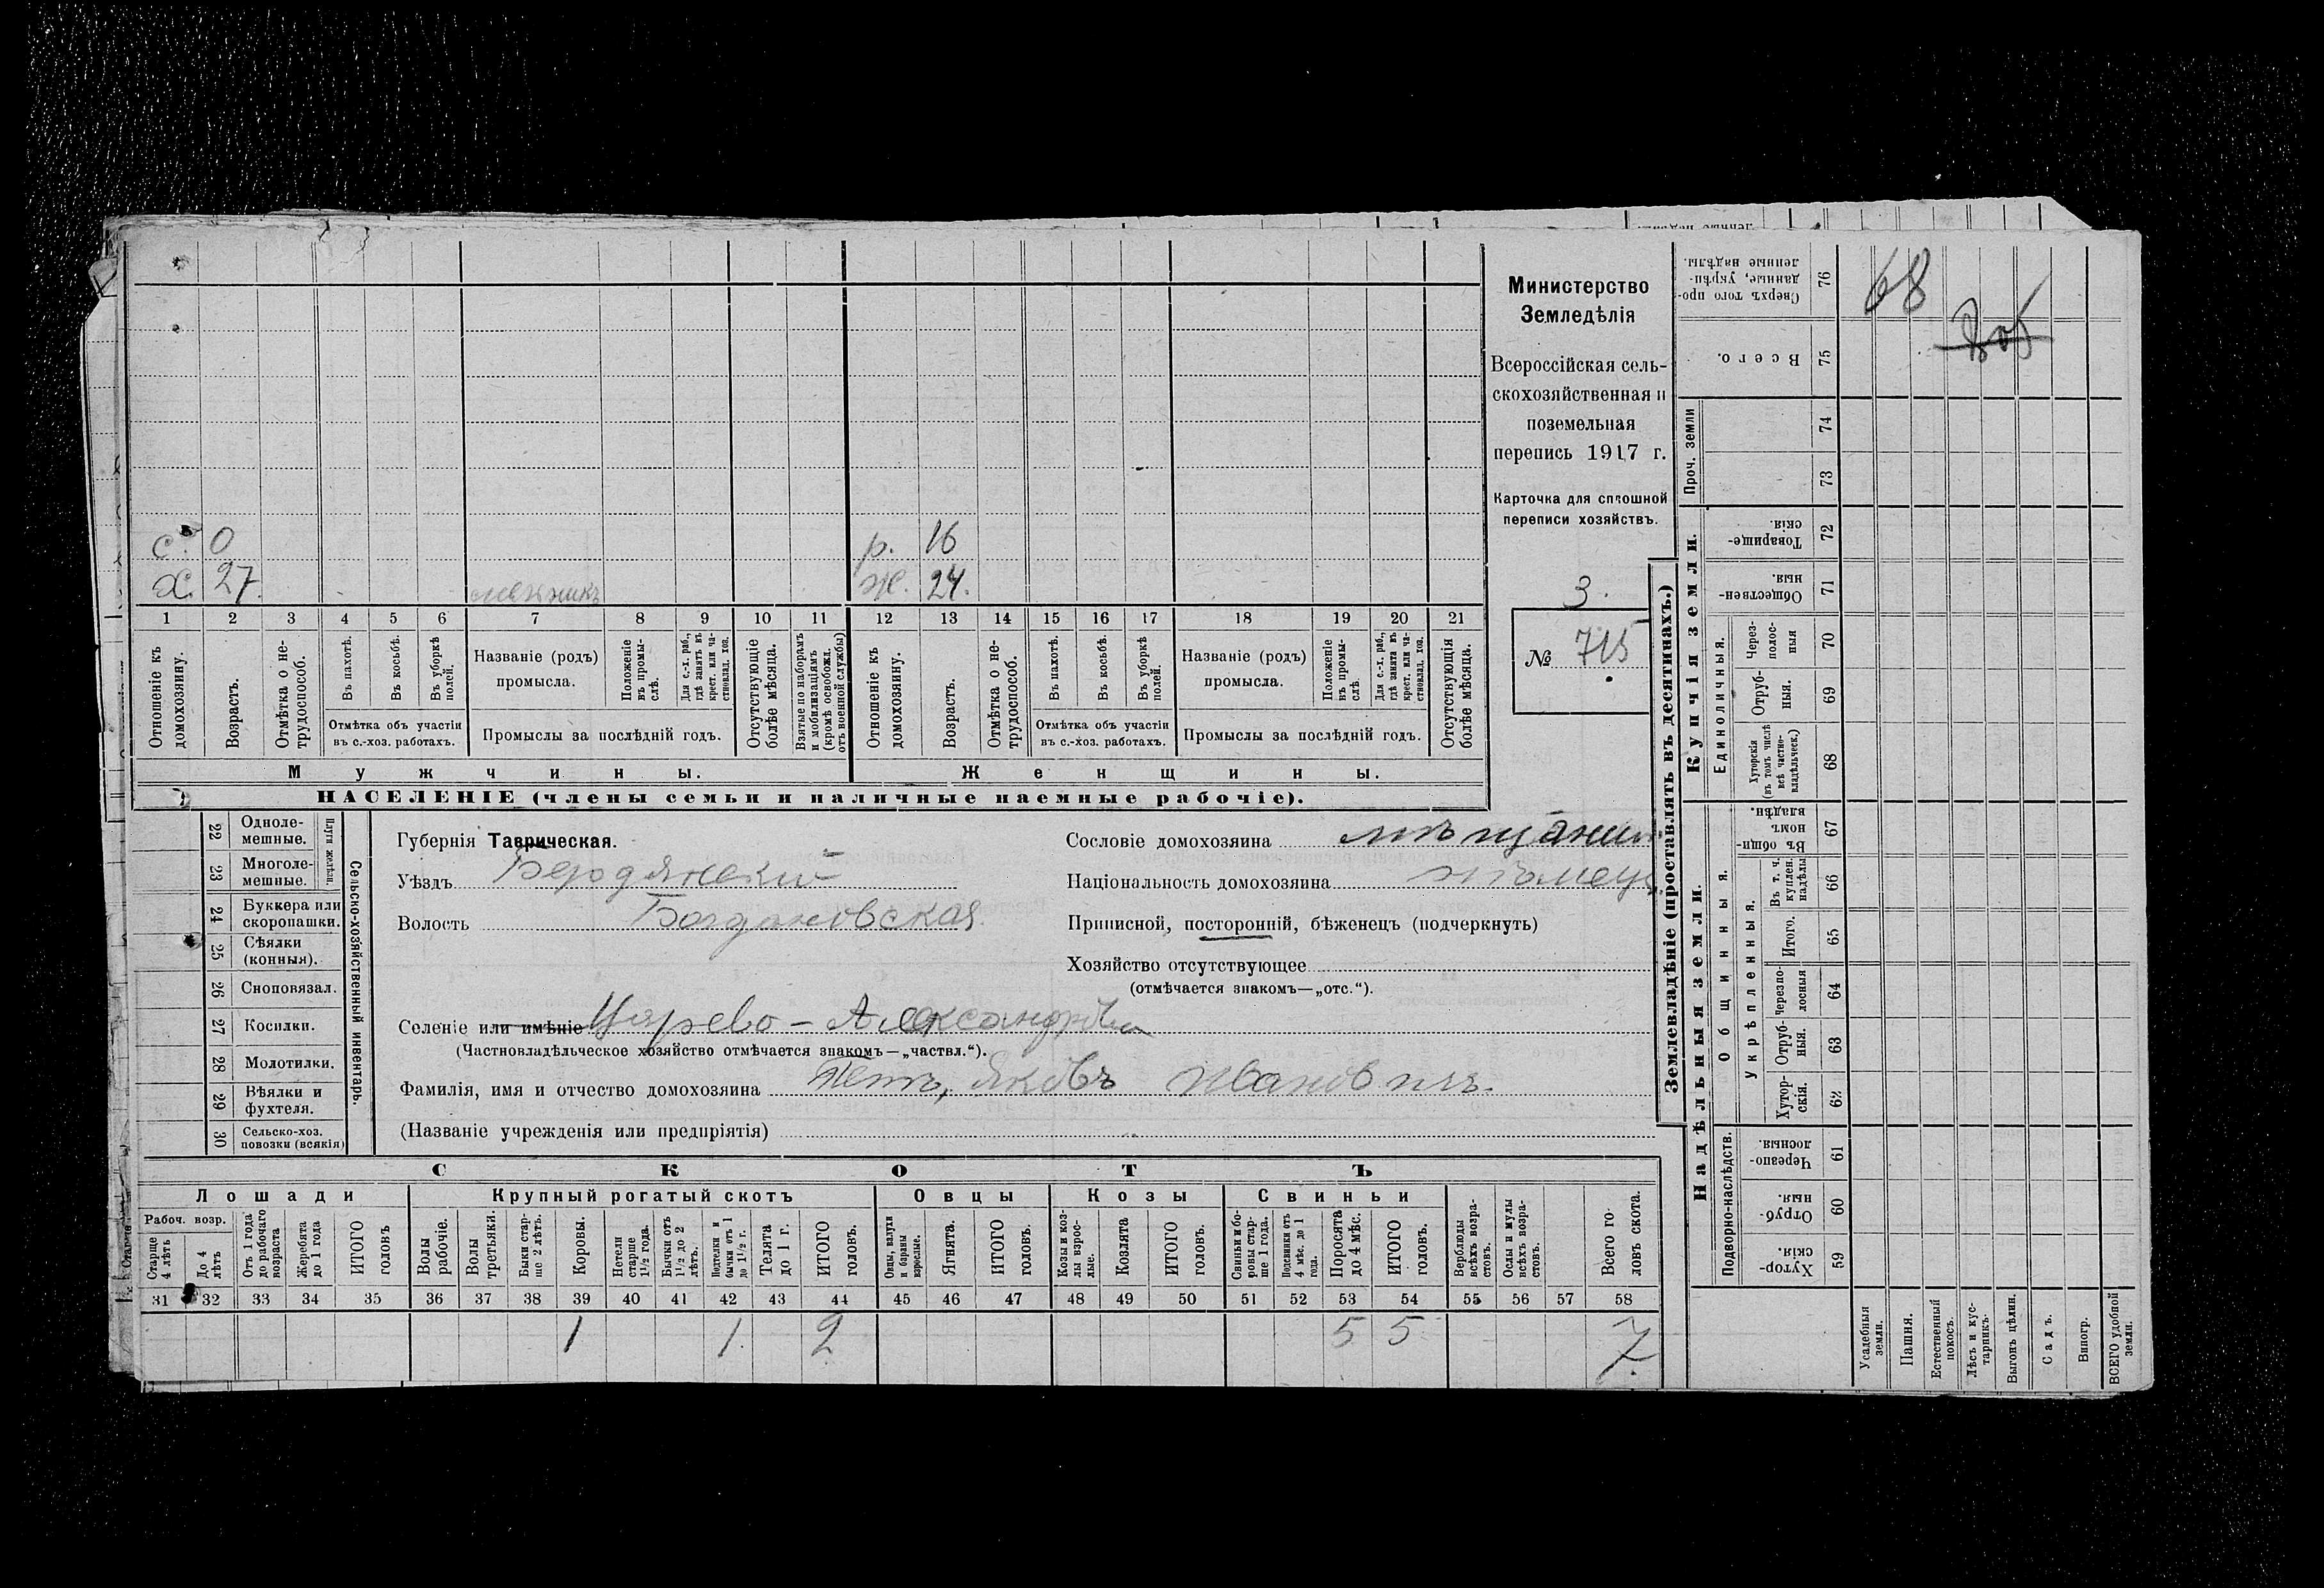 Министерство
Земледѣлія
Всероссійская сель-
скохозяйственная и
поземельная
перепись 1917 г.
Карточка для сплошной
переписи хозяйствъ.
3.
№ 715
с. 0 р. 16
х. 27. Ж. 24.
1 2 3 4 5 6 7 8 9 10 11 12 13 14 15 16 17 18 19 20 21
Отношеніе къ домохозяину.
Возрастъ.
Отмѣтка о не-трудоспособ.
Въ пахотѣ.
Въ косьбѣ.
Въ уборкѣ полей.
Отмѣтка объ участіи
въ с.-хоз. работахъ.
Названіе (родъ)
промысла.
Положеніе въ промы-слѣ.
Для с.-х. раб., гдѣ занятъ въ крест. или ча-стновлад. хоз.
Промыслы за послѣдній годъ.
Отсутствующіе болѣе мѣсяца.
Взятые по наборамъ и мобилизаціямъ (кромѣ освобожд. отъ военной службы)
Отношеніе къ домохозяину.
Возрастъ.
Отмѣтка о не-трудоспособ.
Въ пахотѣ.
Въ косьбѣ.
Въ уборкѣ полей.
Отмѣтка объ участіи
въ с.-хоз. работахъ.
Названіе (родъ)
промысла.
Положеніе въ промы-слѣ.
Для с.-х. раб., гдѣ занята въ крест. или ча-стновлад. хоз.
Промыслы за послѣдній годъ.
Отсутствующія болѣе мѣсяца.
Мужчины. Женщины.
НАСЕЛЕНІЕ (члены семьи и наличные наемные рабочіе).
22 Одноле-мешные.
23 Многоле-мешные.
Плуги желѣзн.
24 Буккера или скоропашки.
25 Сѣялки (конныя).
26 Сноповязал.
27 Косилки.
28 Молотилки.
29 Вѣялки и фухтеля.
30 Сельско-хоз. повозки (всякія)
Сельско-хозяйственный инвентарь.
Губернія Таврическая.
Уѣздъ Бердянскій
Волость Богдановская
Сословіе домохозяина мѣщанин
Національность домохозяина нѣмецъ
Приписной, посторонній, бѣженецъ (подчеркнуть)
Хозяйство отсутствующее
(отмѣчается знакомъ—„отс.“).
Селеніе или имѣніе Царево-Александровка
(Частновладѣльческое хозяйство отмѣчается знакомъ—„частвл.“).
Фамилія, имя и отчество домохозяина Яковъ Ивановичъ.
(Названіе учрежденія или предпріятія)
СКОТЪ
Лошади Крупный рогатый скотъ Овцы Козы Свиньи
Рабоч. возр.
Старше 4 лѣтъ
До 4 лѣтъ
Отъ 1 года до рабочаго возраста
Жеребята до 1 года
ИТОГО головъ
Волы рабочіе.
Волы третьяки.
Быки стар-ше 2 лѣтъ.
Коровы.
Нетели старше 1½ года.
Бычки отъ 1½ до 2 лѣтъ.
Подтелки и бычки отъ 1 до 1½ г.
Телята до 1 г.
ИТОГО головъ.
Овцы, валухи и бараны взрослые.
Ягнята.
ИТОГО головъ.
Козы и коз-лы взрос-лые.
Козлята
ИТОГО головъ.
Свиньи и бо-ровы стар-ше 1 года.
Подсвинки отъ 4 мѣс. до 1 года.
Поросята до 4 мѣс.
ИТОГО головъ.
Верблюды всѣхъ возра-стовъ.
Ослы и мулы всѣхъ возра-стовъ.
Всего го-ловъ скота.
31 32 33 34 35 36 37 38 39 40 41 42 43 44 45 46 47 48 49 50 51 52 53 54 55 56 57 58
1 1. 2 5 5 7.
Землевладѣніе (проставлять въ десятинахъ.)
Купчія земли.
Надѣльныя земли.
Сверхъ того про-данные, укрѣп-ленные надѣлы. 76
68
Всего. 75
Проч. земли 74 73
Товарище-скія. 72
Обществен-ныя. 71
Единоличныя.
Через-полос-ныя 70
Отруб-ныя. 69
Хуторскія (въ томъ числѣ всѣ частно-владѣльческ.) 68
Общинныя.
Въ общин-номъ владѣн. 67
Укрѣпленныя.
Въ т. ч. куплен. надѣлы 66
Итого. 65
Черезпо-лосныя 64
Отруб-ныя. 63
Хутор-скія. 62
Подворно-наслѣдств.
Черезпо-лосныя. 61
Отруб-ныя. 60
Хутор-скія. 59
Усадебныя земли.
Пашня.
Естественный покосъ.
Лѣсъ и кус-тарникъ.
Выгонъ цѣлин.
Садъ.
Виногр.
ВСЕГО удобной земли.